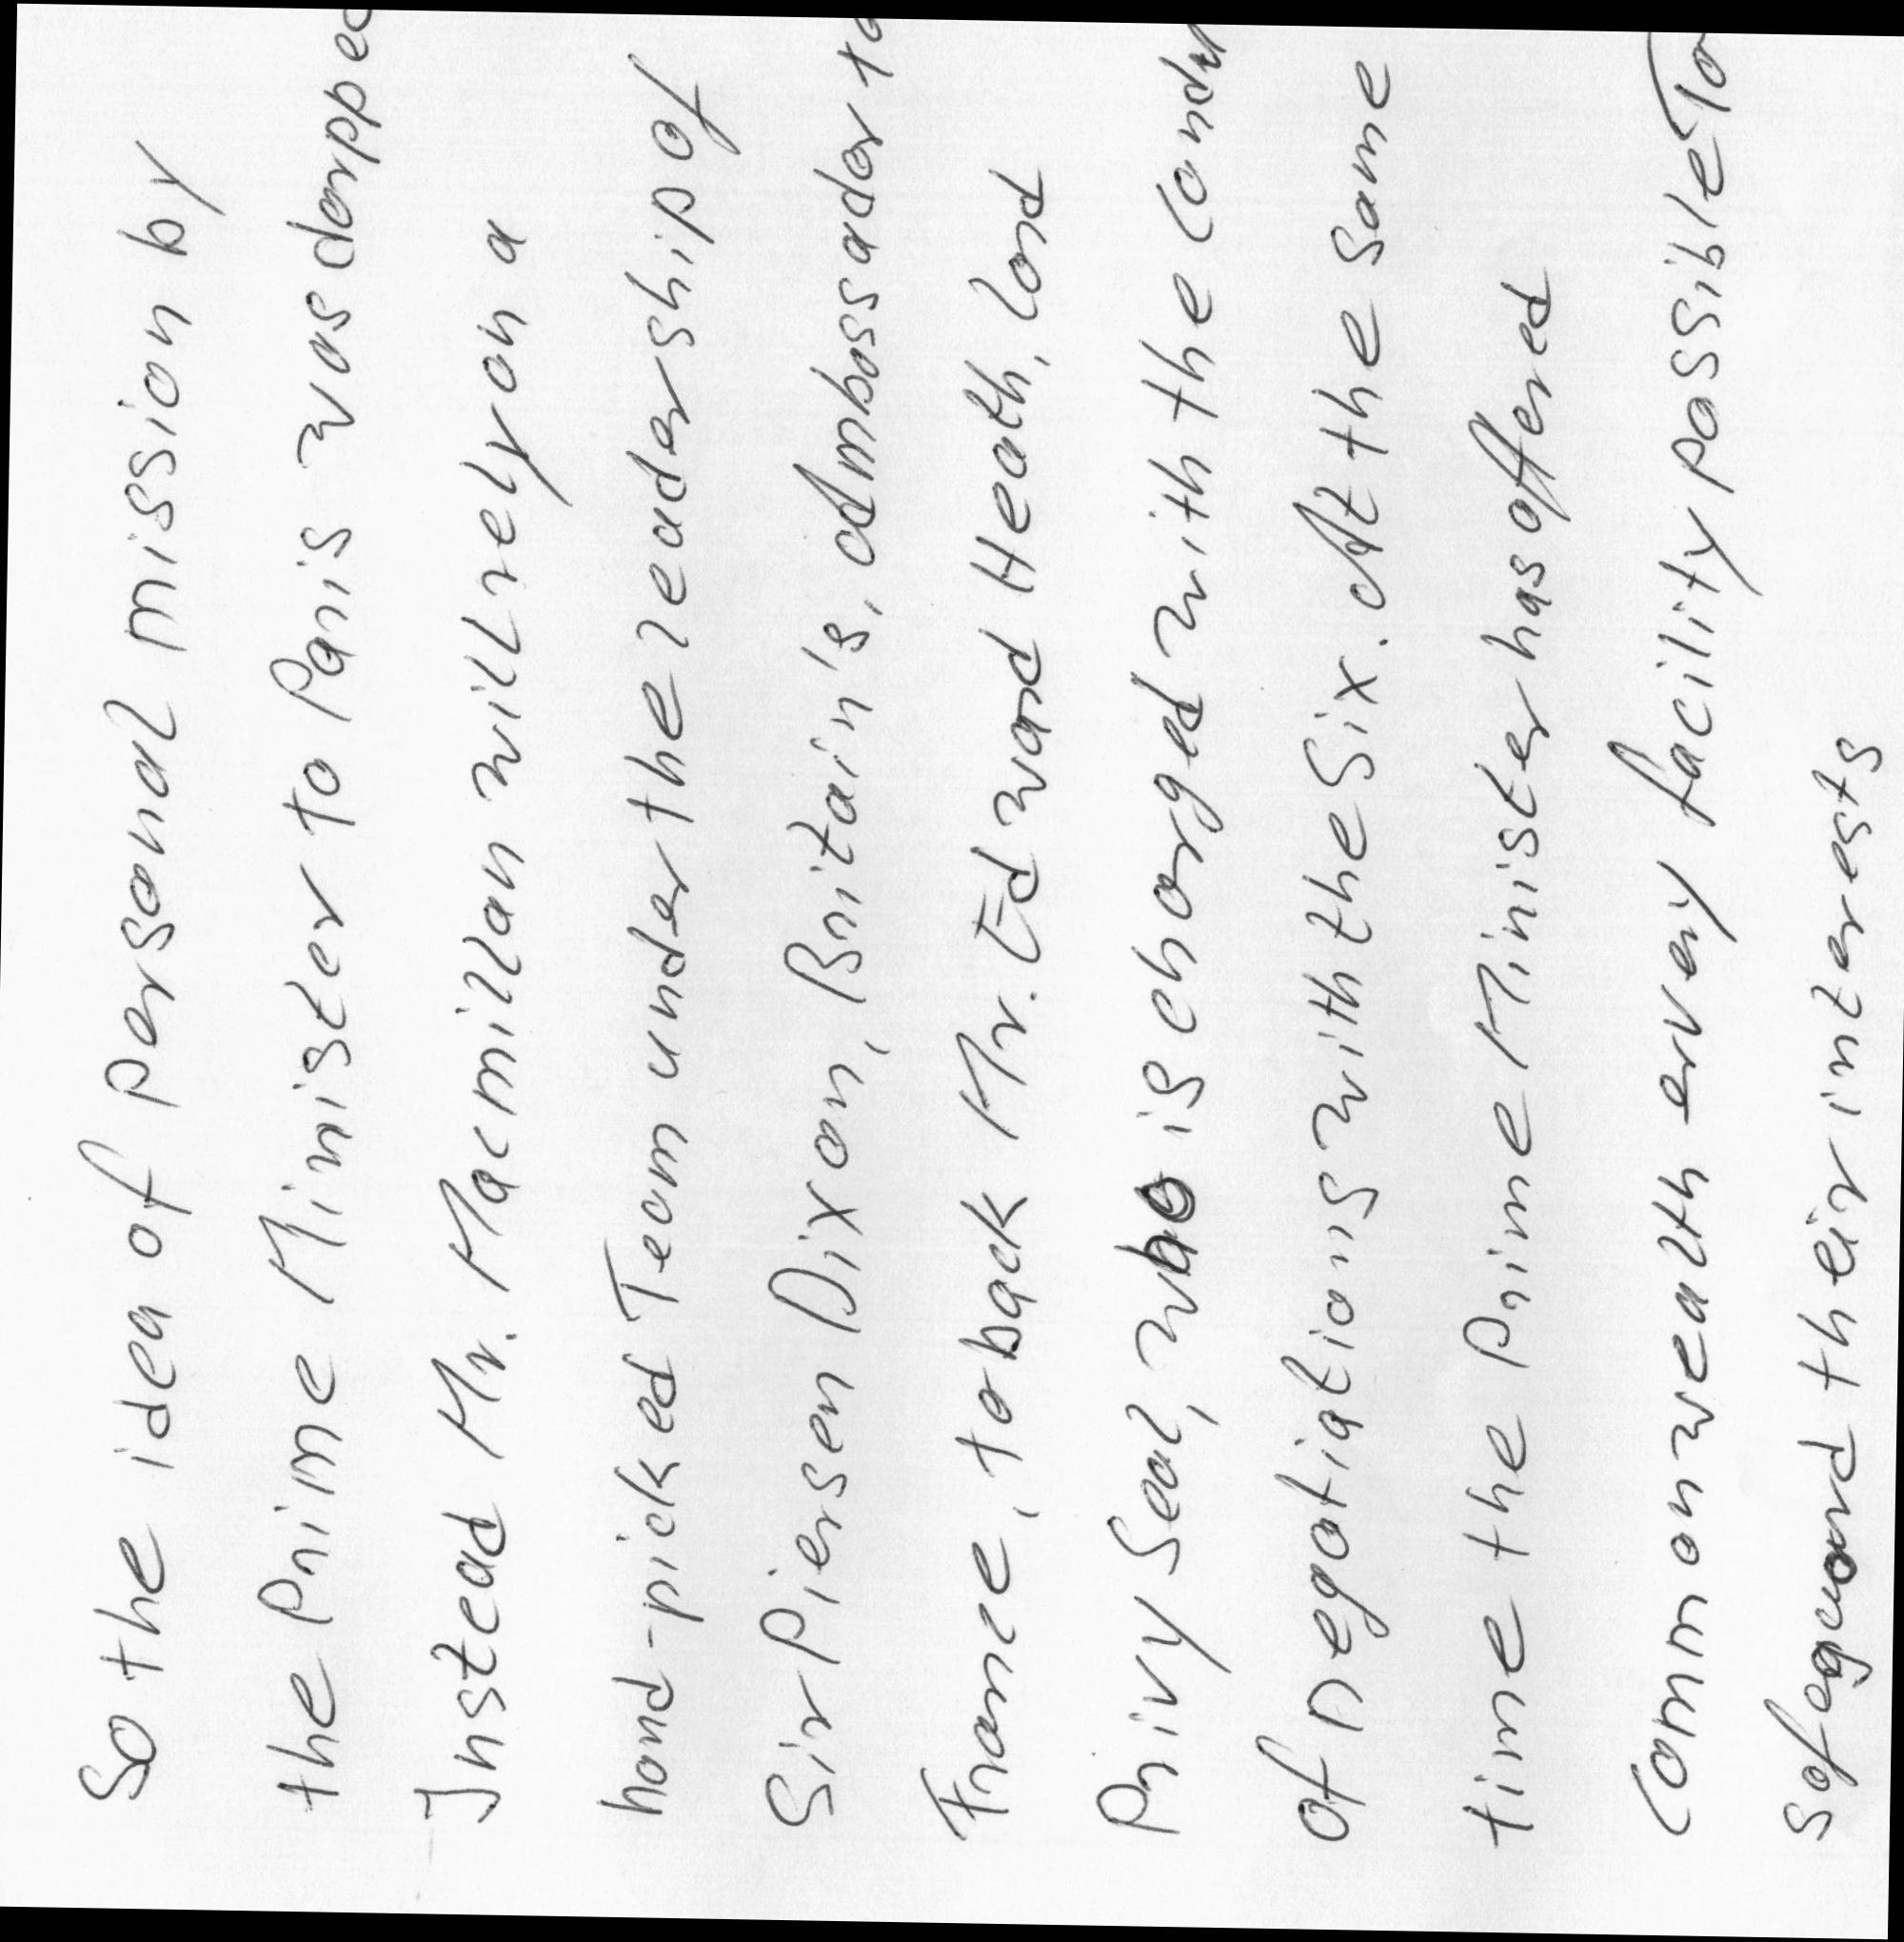 So the idea of personal mission by
the Prime Minister to Paris was dampped
Instead Mr. Macmillan will rely on a
hand-picked Team under the leadership of
Sir Piersen Dixon, Britain's, Ambassador to
France, to back Mr. Edward Heath, Lord
Privy Seal, who is charged with the Condu
of negotiations with the Six. At the same
time the Prime Minister has offered
Commonwealth every facility possible To
safeguard their interests